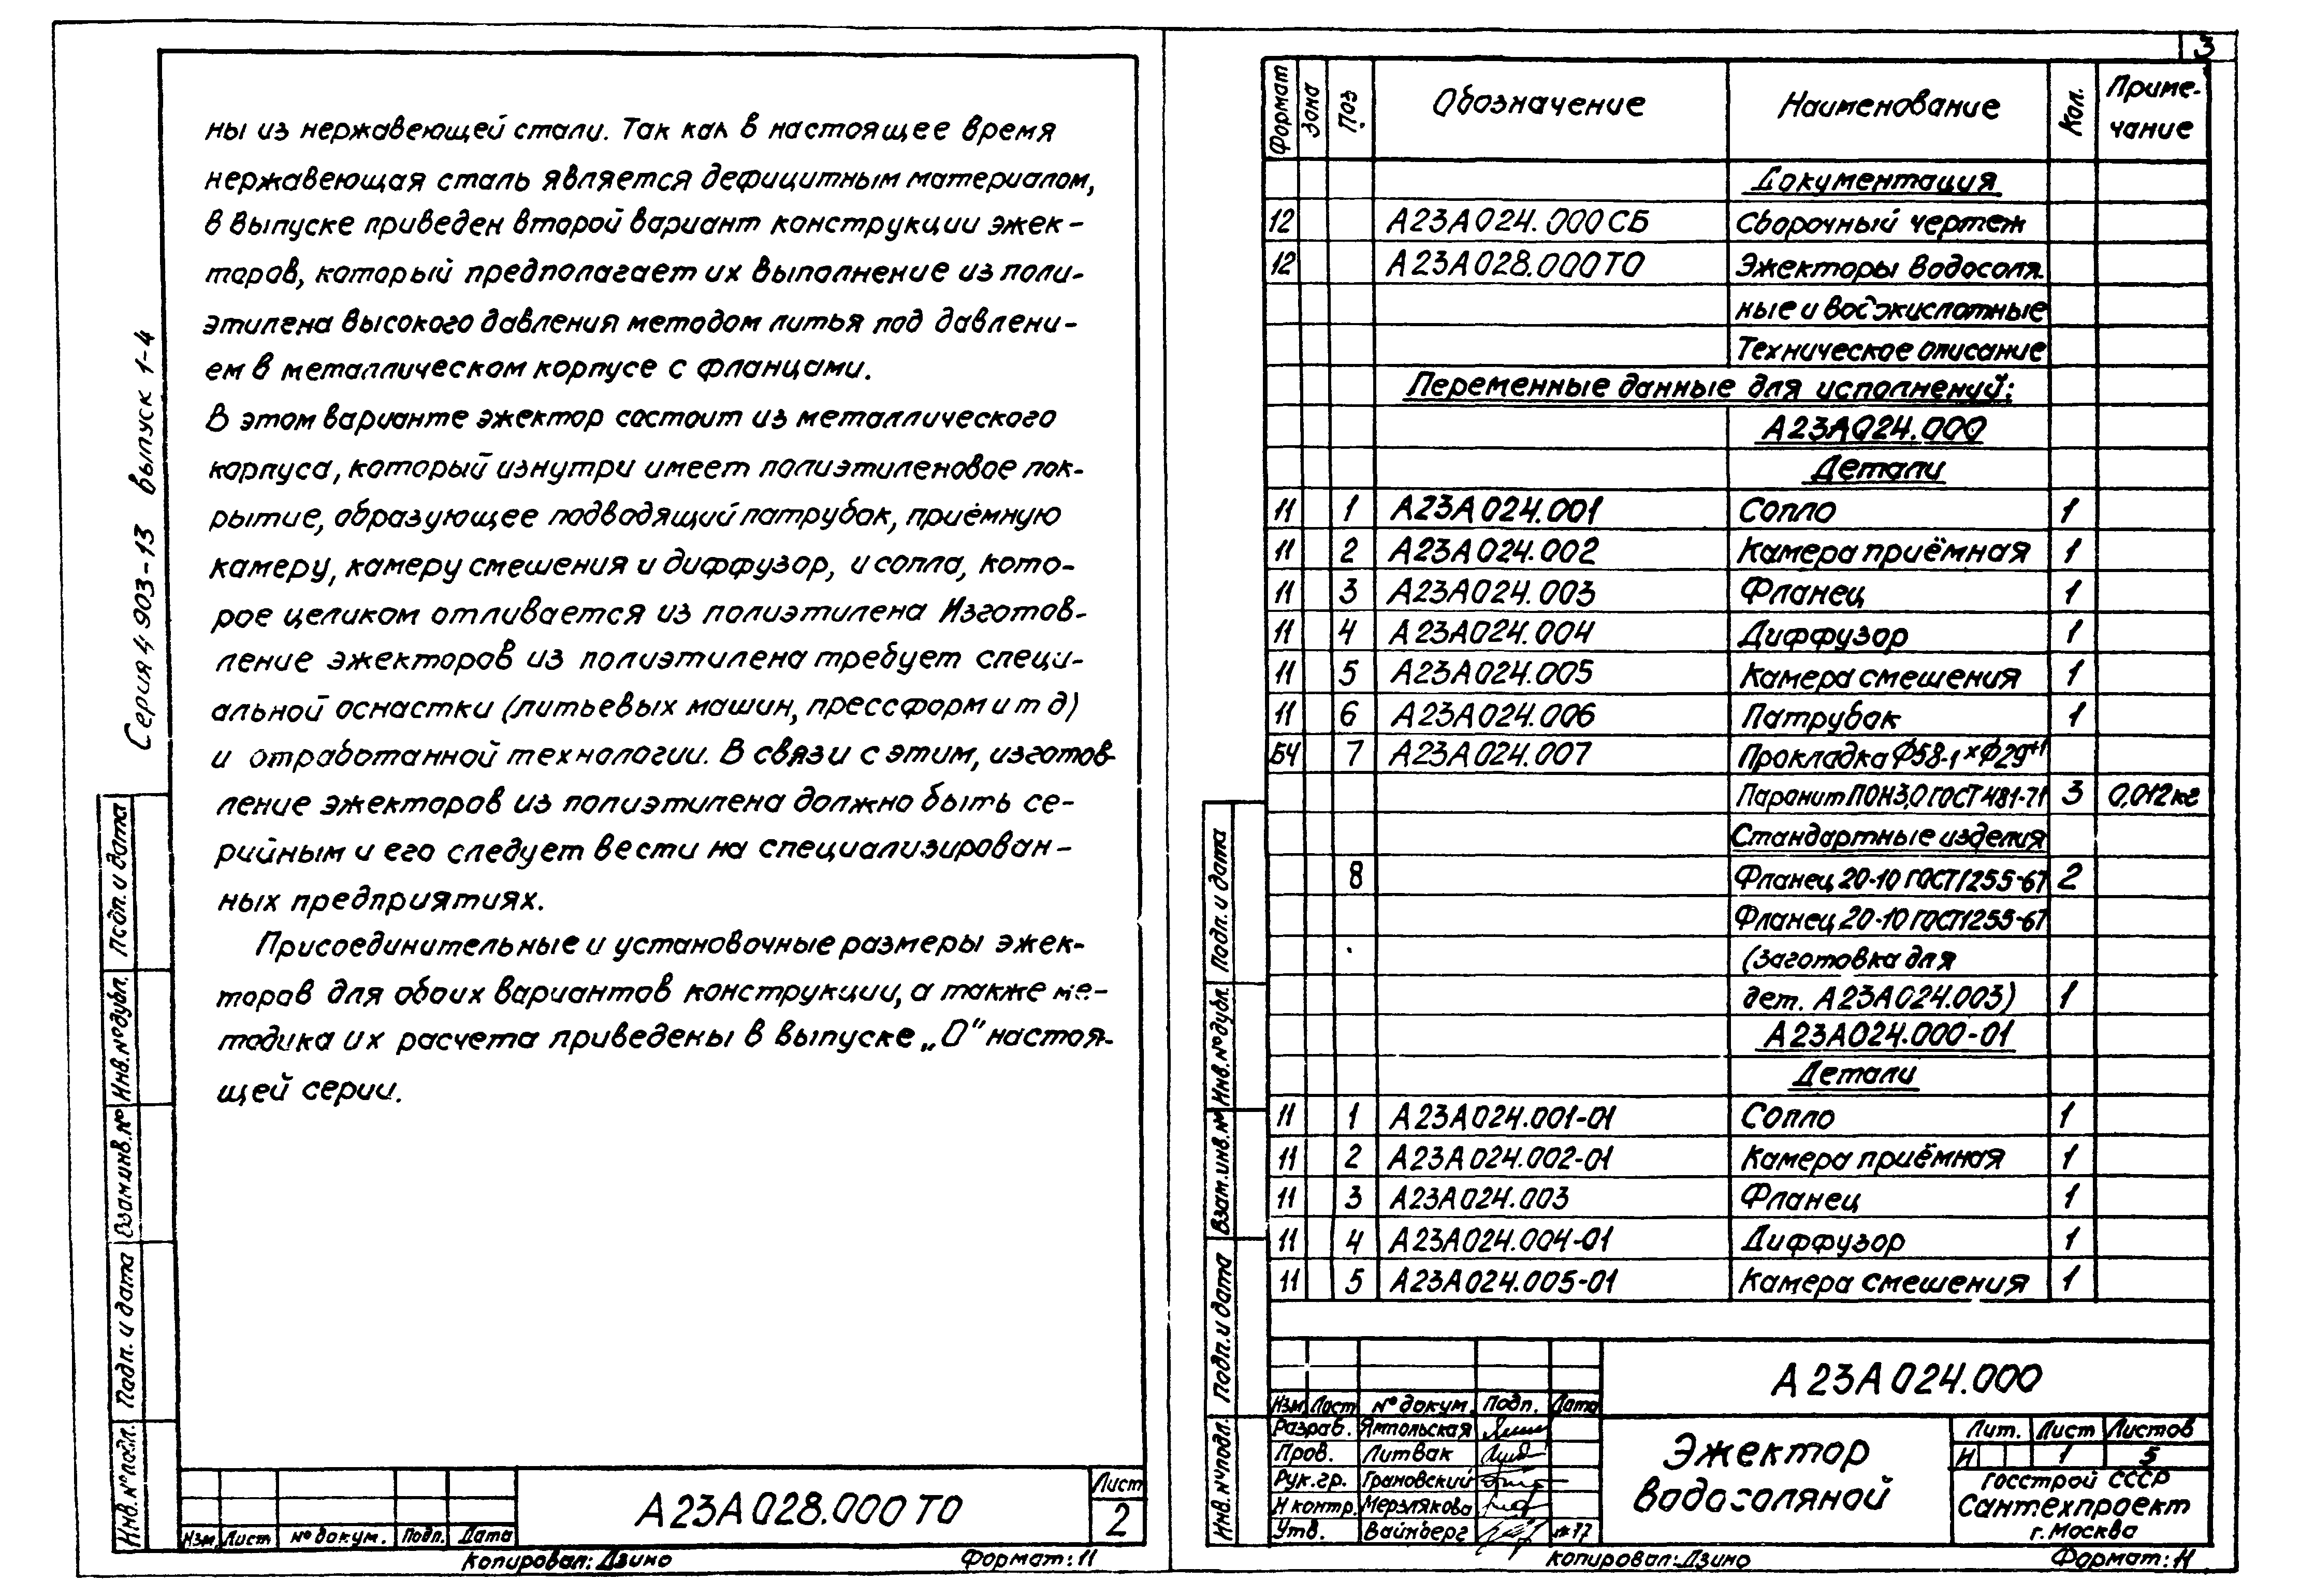 ны из нержавеющей стали. Так как в настоящее время
нержавеющая сталь является дефицитным материалом,
в выпуске приведен второй вариант конструкции эжек-
торов, который предполагает их выполнение из поли-
этилена высокого давления методом литья под давлени-
ем в металлическом корпусе с фланцами.
В этом варианте эжектор состоит из металлического
корпуса, который изнутри имеет полиэтиленовое пок-
рытие, образующее подводящий патрубок, приёмную
камеру, камеру смешения и диффузор, и сопла, кото-
рое целиком отливается из полиэтилена Изготов-
ление эжекторов из полиэтилена требует специ-
альной оснастки (литьевых машин, прессформ и т д)
и отработанной технологии. В связи с этим, изготов-
ление эжекторов из полиэтилена должно быть се-
рийным и его следует вести на специализирован-
ных предприятиях.
Присоединительные и установочные размеры эжек-
торов для обоих вариантов конструкции, а также ме-
тодика их расчета приведены в выпуске „0" настоя-
щей серии.
Серия 4 903-13 выпуск 1-4
Подп. и дата
Инв. № дубл.
Взам инв. №
Подп. и дата
Инв. № подл.
Изм Лист № докум. Подп. Дата
А23А028.000 ТО
Лист
2
Копировал: Дзино Формат: 11
3
Формат Зона Поз. Обозначение Наименование Кол. Приме-
чание
Документация
12 А23А024.000СБ Сборочный чертеж
12 А23А028.000ТО Эжекторы водосоля
ные и водокислотные
Техническое описание
Переменные данные для исполнений:
А23А024.000
Детали
11 1 А23А024.001 Сопло 1
11 2 А23А024.002 Камера приёмная 1
11 3 А23А024.003 Фланец 1
11 4 А23А024.004 Диффузор 1
11 5 А23А024.005 Камера смешения 1
11 6 А23А024.006 Патрубок 1
БЧ 7 А23А024.007 Прокладка ф58-1×ф29+1
Паронит ПОН3,0 ГОСТ 481-71 3 0,012кг
Стандартные изделия
8 Фланец 20-10 ГОСТ1255-67 2
Фланец 20-10 ГОСТ1255-67
(Заготовка для
дет. А23А024.003) 1
А23А024.000-01
Детали
11 1 А23А024.001-01 Сопло 1
11 2 А23А024.002-01 Камера приёмная 1
11 3 А23А024.003 Фланец 1
11 4 А23А024.004-01 Диффузор 1
11 5 А23А024.005-01 Камера смешения 1
Подп. и дата
Инв. № дубл.
Взам. инв. №
Подп. и дата
Инв. № подл.
А23А024.000
Изм Лист № докум. Подп. Дата
Разраб. Ямпольская
Пров. Литвак
Рук. гр. Грановский
Н контр. Мерзлякова
Утв. Вайнберг
Эжектор
водосоляной
Лит. Лист Листов
И 1 5
Госстрой СССР
Сантехпроект
г. Москва
Копировал: Дзино Формат: 11